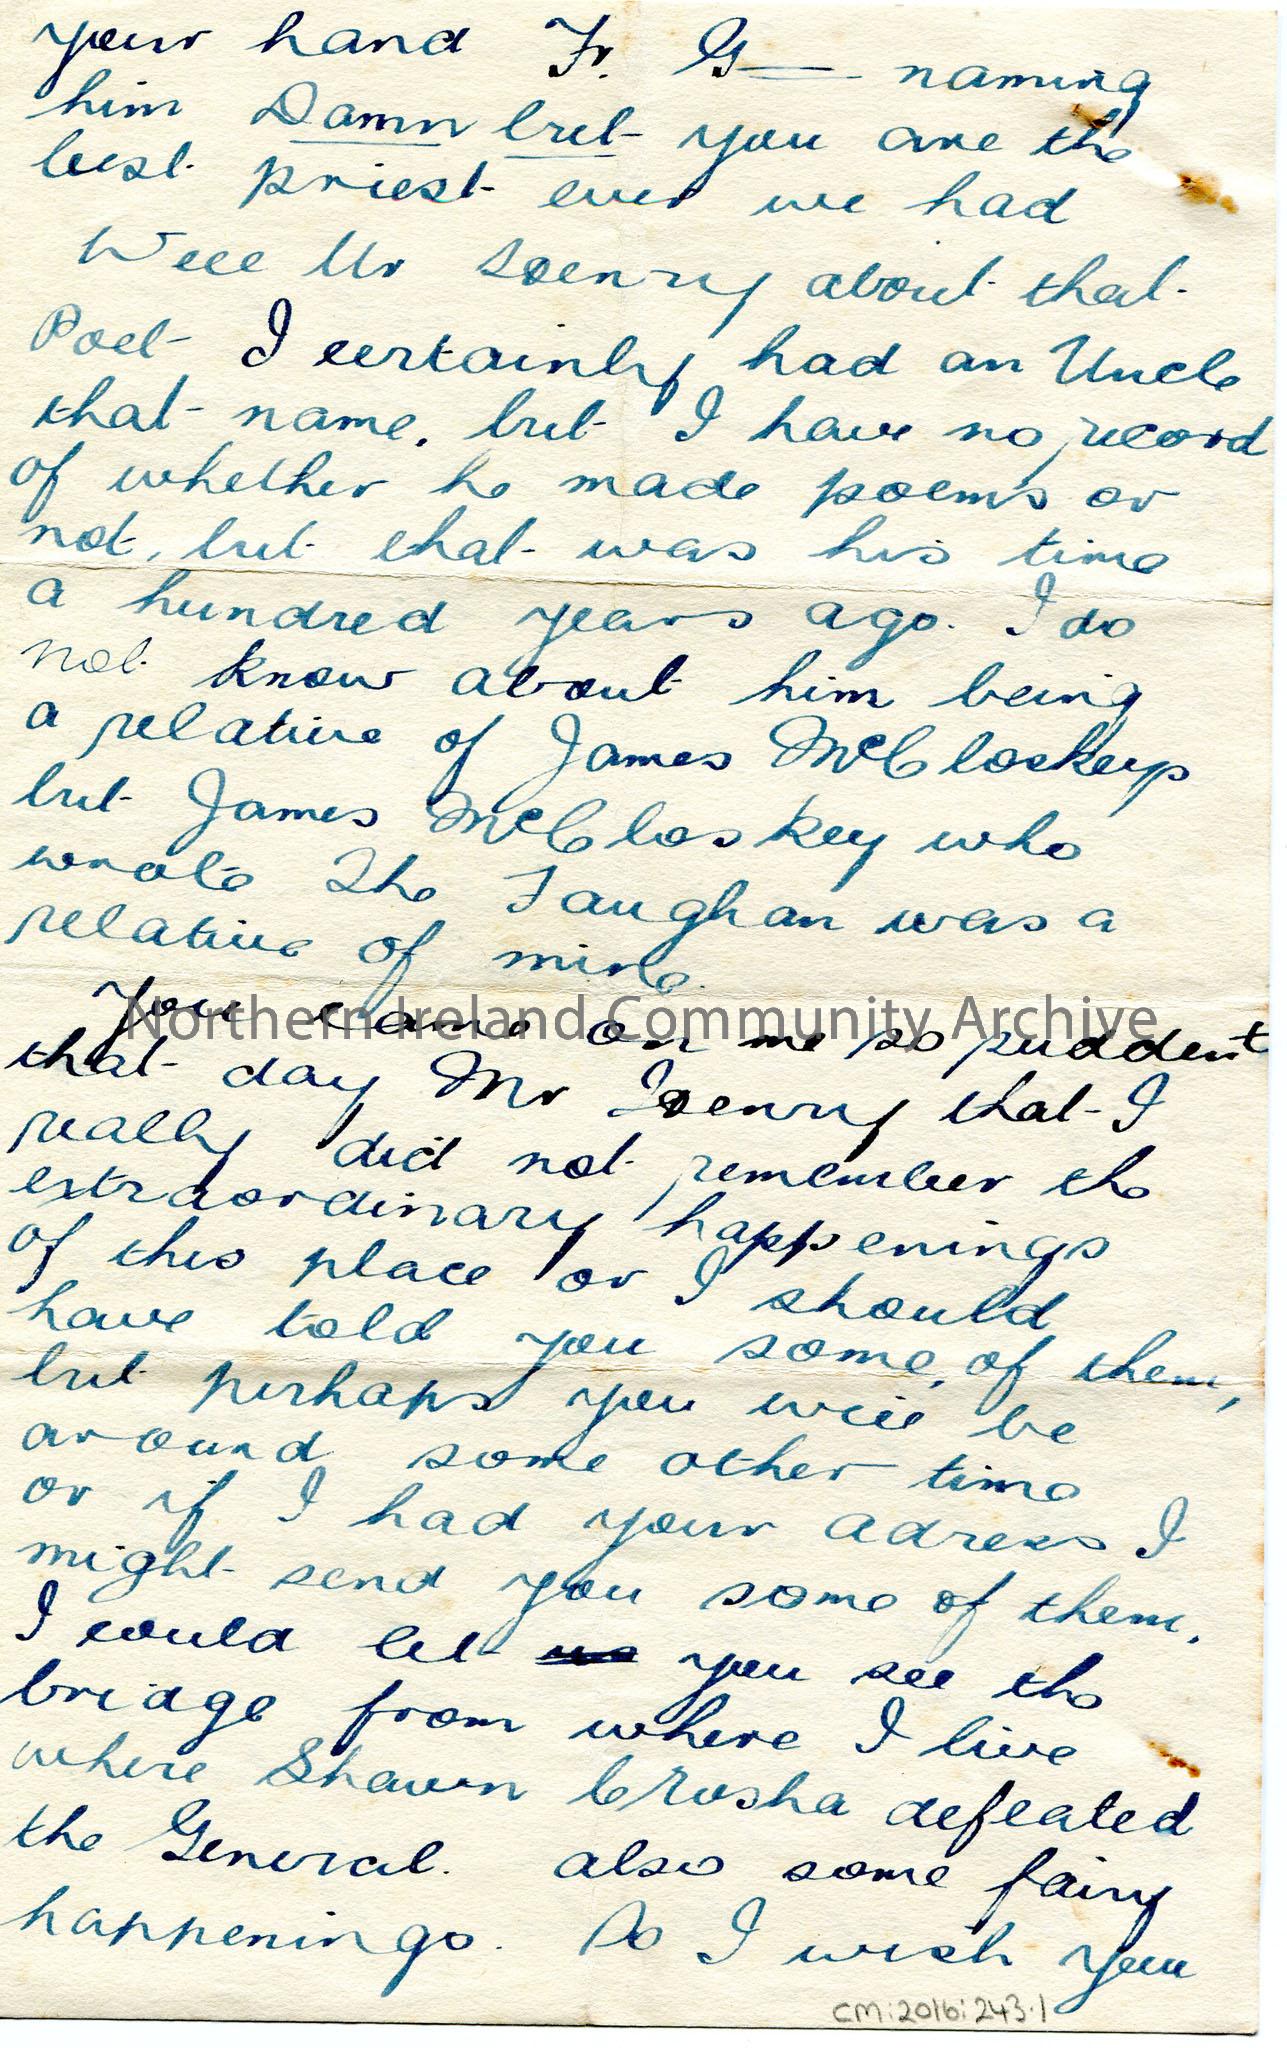 your hand Fr. G— naming
him Damn but you are the
best priest ever we had
Well Mr Henry about that
Poet I certainly had an Uncle
that name. but I have no record
of whether he made poems or
not, but that was his time
a hundred years ago. I do
not know about him being
a relative of James McCloskeys
but James McCloskey who
wrote The Faughan was a
relative of mine.
You came on me so suddent
that day Mr Henry that I
really did not remember the
extraordinary happenings
of this place or I should
have told you some, of them,
but perhaps you will be
around some other time
or if I had your adress I
might send you some of them.
I would let you see the
bridge from where I live
where Shawn Crosha defeated
the General. also some fairy
happenings. So I wish you
Northern Ireland Community Archive
CM:2016:243.1